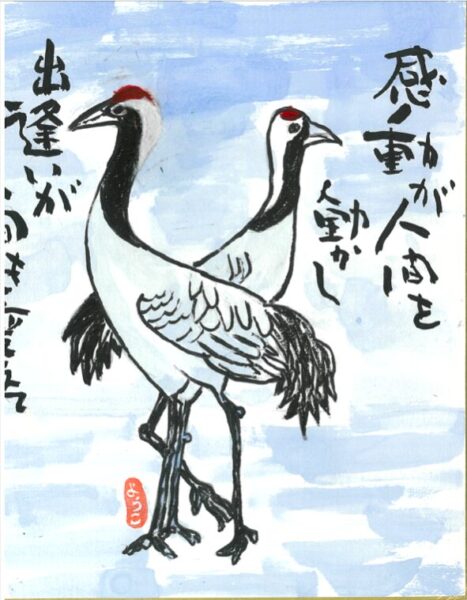 感動が人間を
動かし
出逢いが
間を変えて